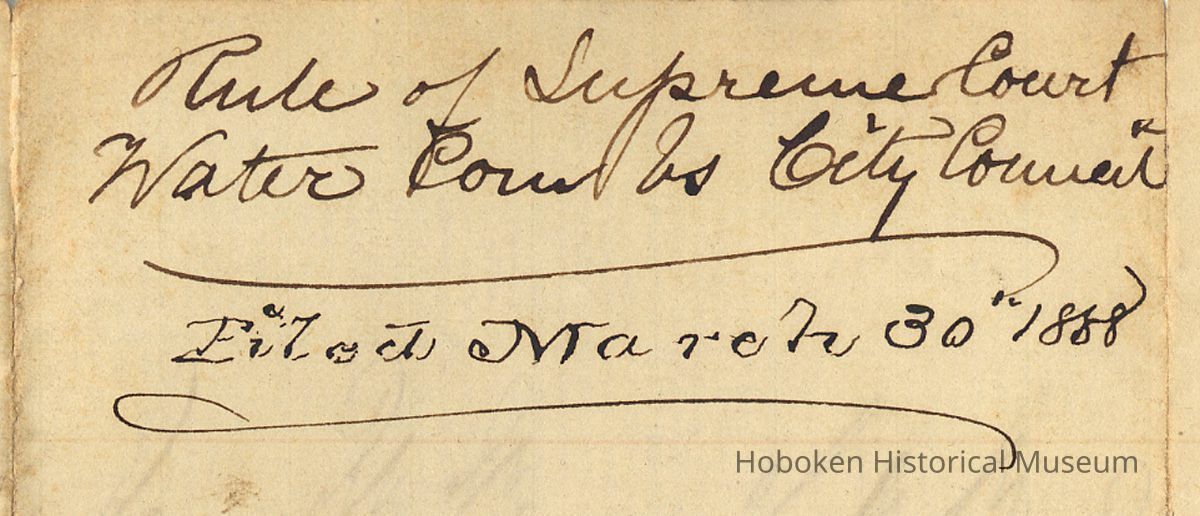 Rule of Supreme Court
Water Com Vs City Council
Filed March 30th 1858
Hoboken Historical Museum